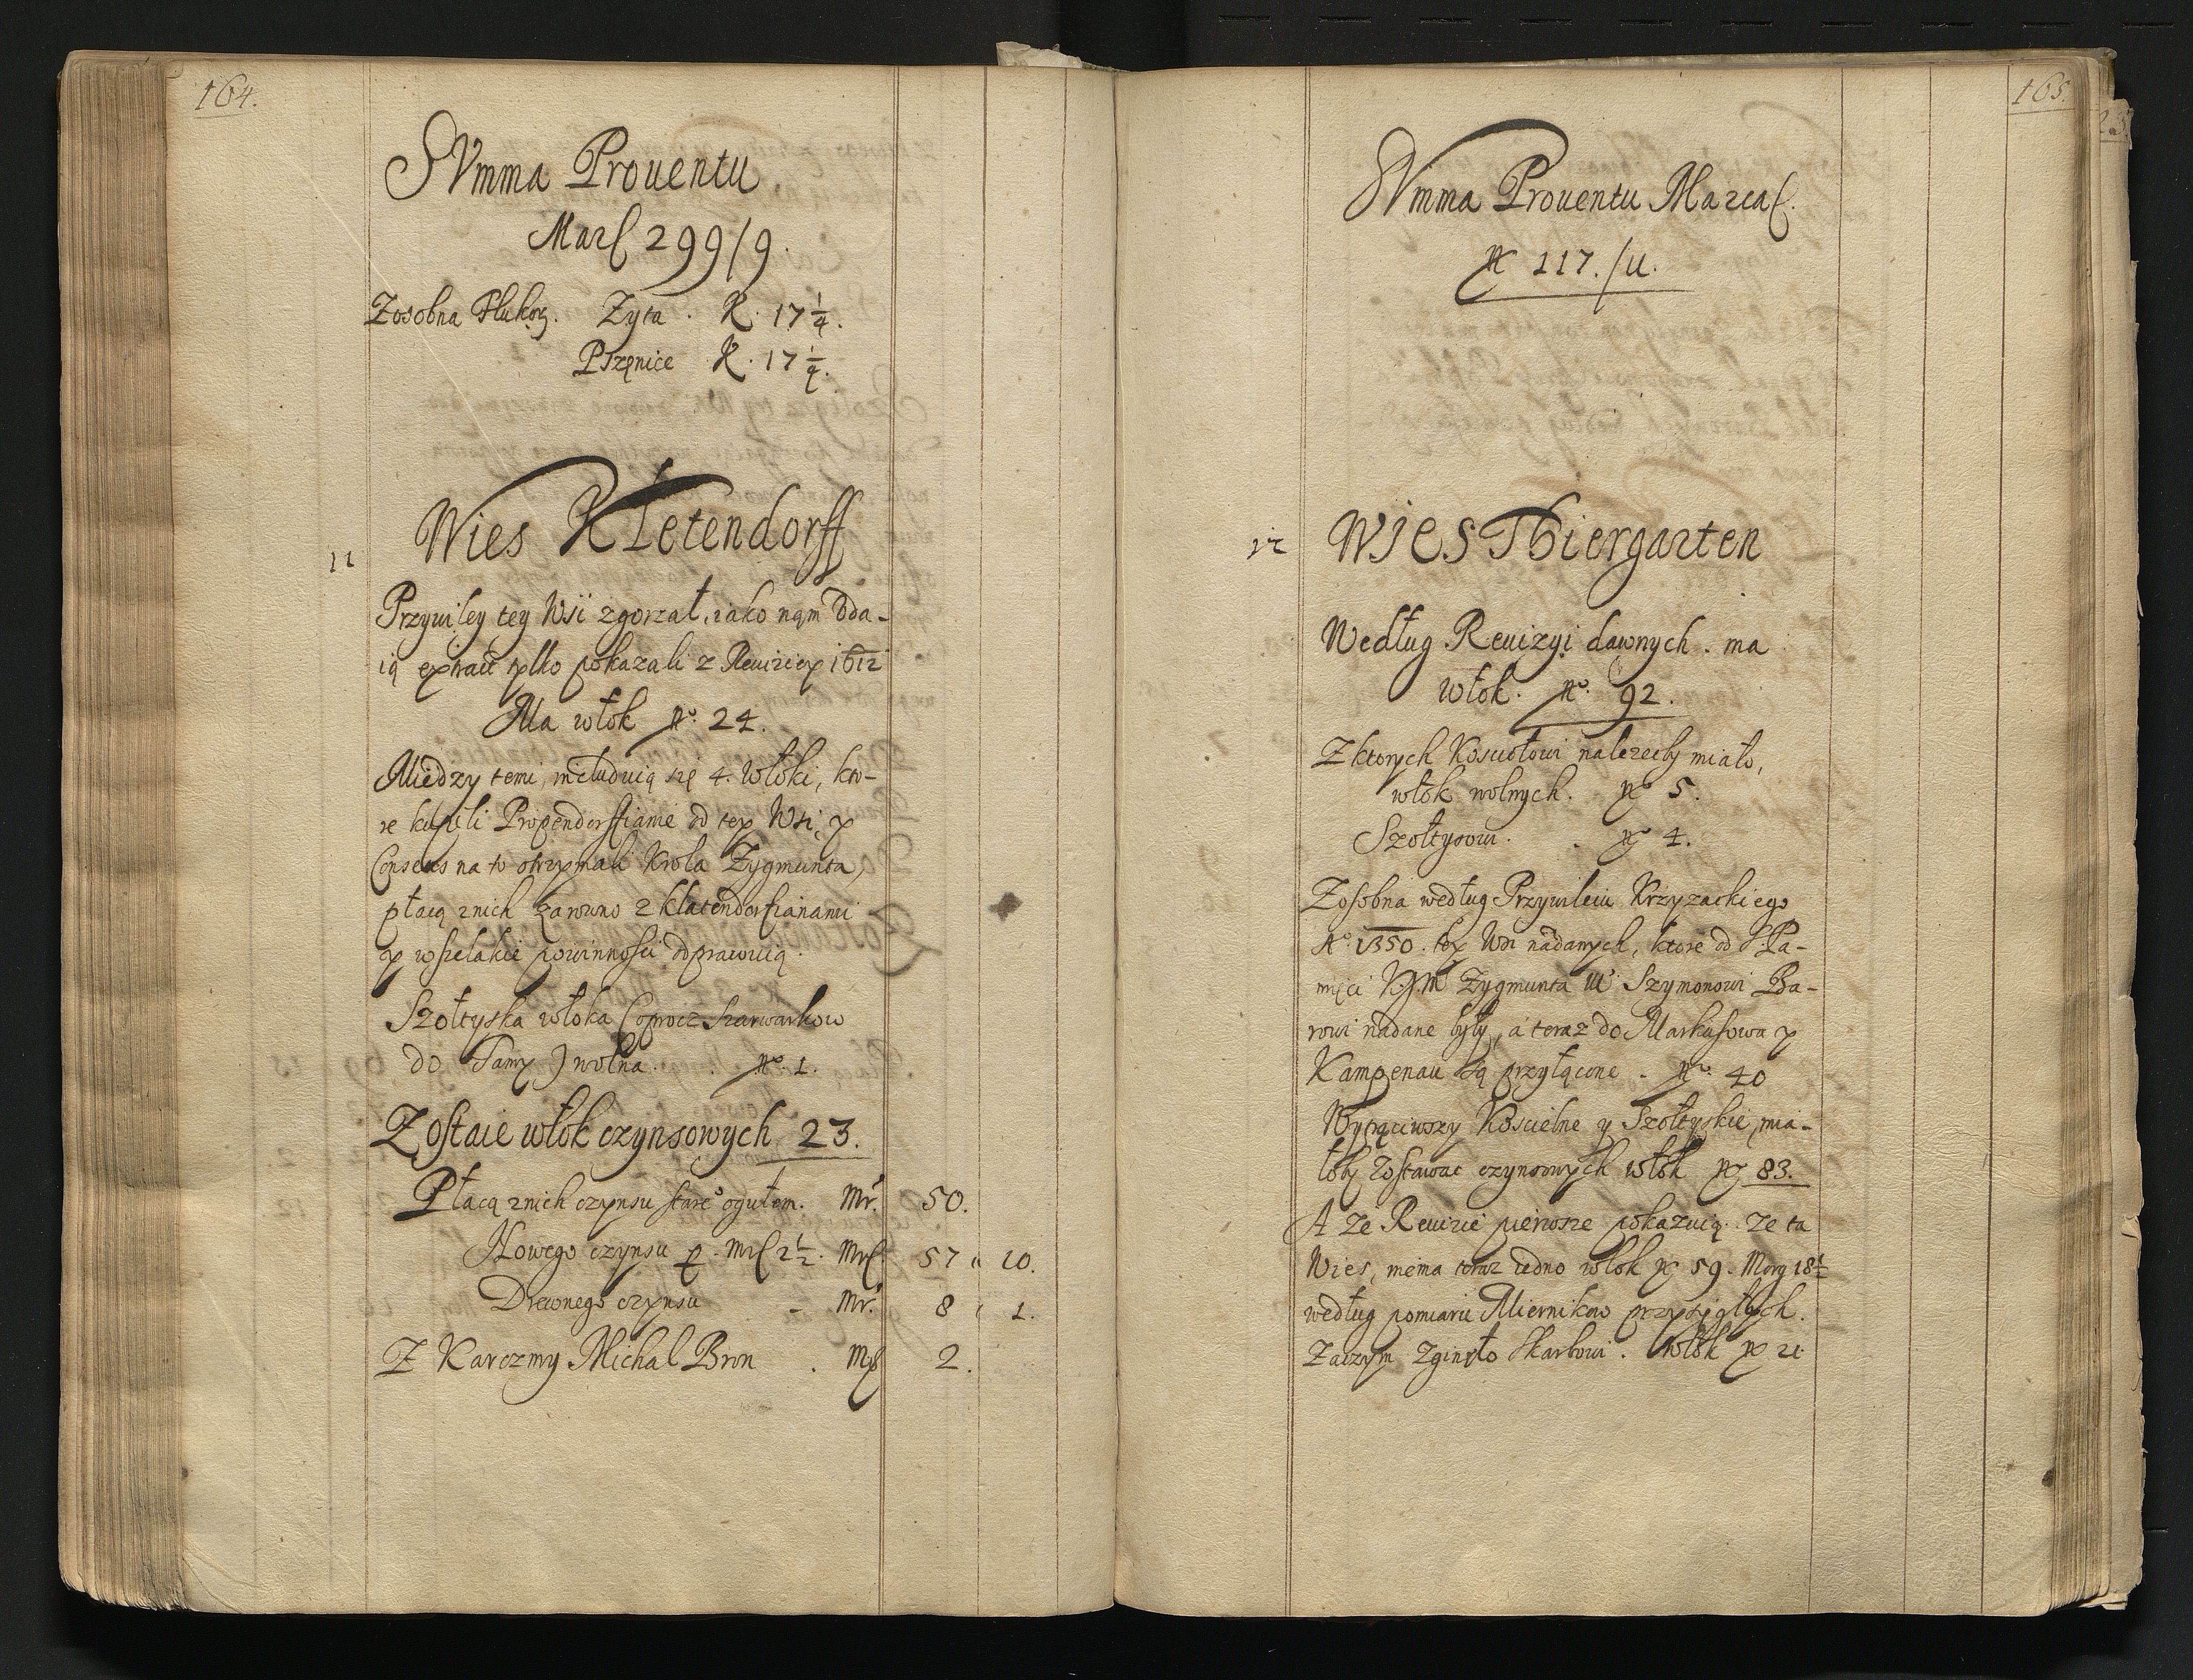 164.
SVmma Prouentu
Marc 299/9.
Zosobna Płukoz. Zyta. K. 17 1/4.
Pszęnice K. 17 1/4.
11
Wies Kletendorff
Przywiley tey Wsi zgorzał, iako nąm Vda-
ią extract tylko pokazali z Reuiziey 1612
Ma włok No. 24.
Miedzy temi, includuią się 4. Włoki, kto-
re kupili Propendorffianie od tey Wsi, y
Consens na to otrzymali Krola Zygmunta,
płacą z nich zarowno z Klatendorfianami
y wszelakie powinnosci odprawuią.
Szołtyska włoka (oprocz Szarwarkow
do Tamy) wolna. No. 1.
Zostaie włok czynsowych 23.
Płacą z nich czynsu stare° ogułem. Mr. 50.
Nowego czynsu p. Mrc 2 1/2. Mrc. 57 " 10.
Drewnego czynsu - Mr. 8 " 1.
Z Karczmy Michal Bron. Mrc 2.
165.
SVmma Prouentu Marcas.
No 117. / 11.
12
WIES Thiergarten
Według Reuizyi dawnych. ma
włok. No. 92.
Z ktorych Kosciołowi nalezecby miało,
włok wolnych. No 5.
Szołtysowi. No 4.
Zosobna według Przywileiu Krzyzackiego
A° 1350. tey Wsi nadanych, ktore od S. Pa-
mięci K.J.M Zygmunta III Szymonowi Ba-
rowi nadane były, a teraz do Markusowa y
Kampenau są przyłącone - No. 40
Wytrąciwszy Koscielne y Szołtyskie, mia-
łoby zostawac czynsowych włok No 83.
A ze Reuizie pierwsze pokazuią. Ze ta
Wies, niema teraz iedno włok No 59. Morg 18 1/2
według pomiaru Miernikow przysięgłych.
Zaczym zginęło Skarbowi. Włok No 21